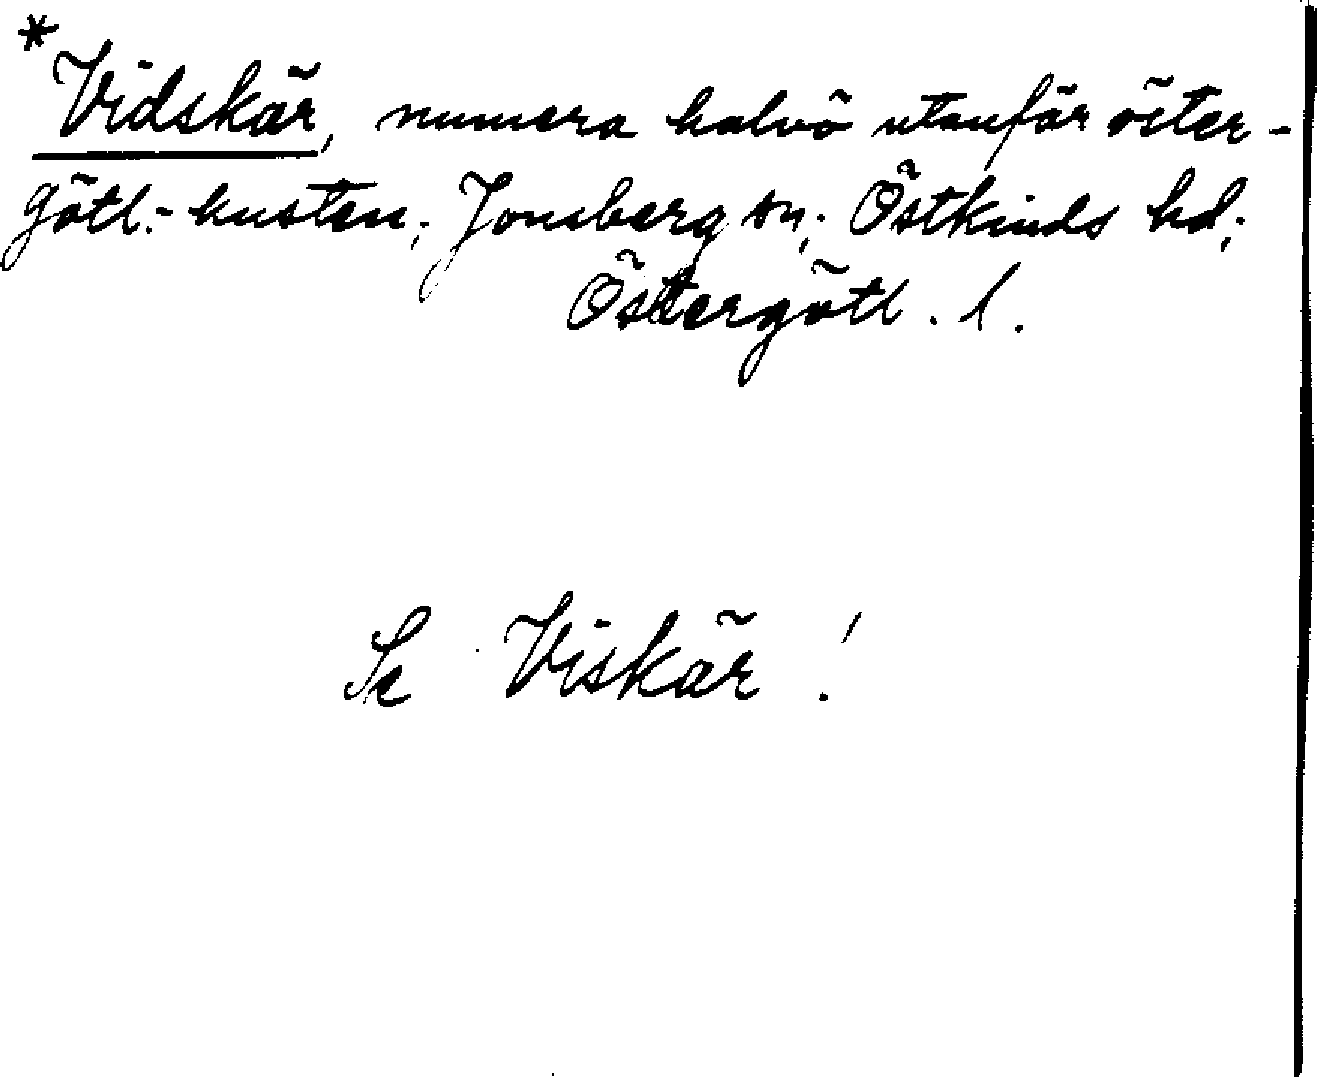 * Vidskär, numera halvö utanför öster-
götl.-kusten; Jonsberg sn; Östkinds hd;
Östergötl. l.
Se Viskär!